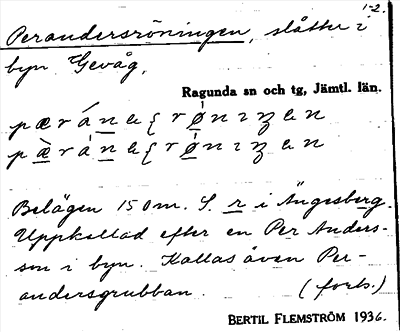 1-2.
Perandersröningen, slåtter i
byn Gevåg.
Ragunda sn och tg, Jämtl. län.
Belägen 150 m. S. r i Ängesberg.
Uppkallad efter en Per Anders-
son i byn. Kallas även Per-
andersgrubban. (forts.)
BERTIL FLEMSTRÖM 1936.